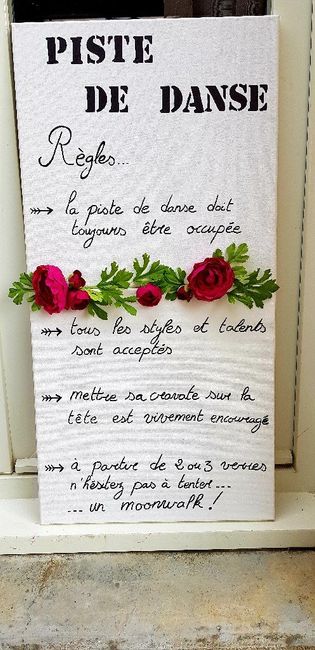 PISTE
DE DANSE
Règles...
la piste de danse doit
toujours être occupée
tous les styles et talents
sont acceptés
mettre sa cravate sur la
tête est vivement encouragé
à partir de 2 ou 3 verres
n'hésitez pas à tenter...
... un moonwalk !